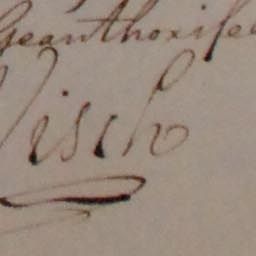 Geauthorisee
Visch